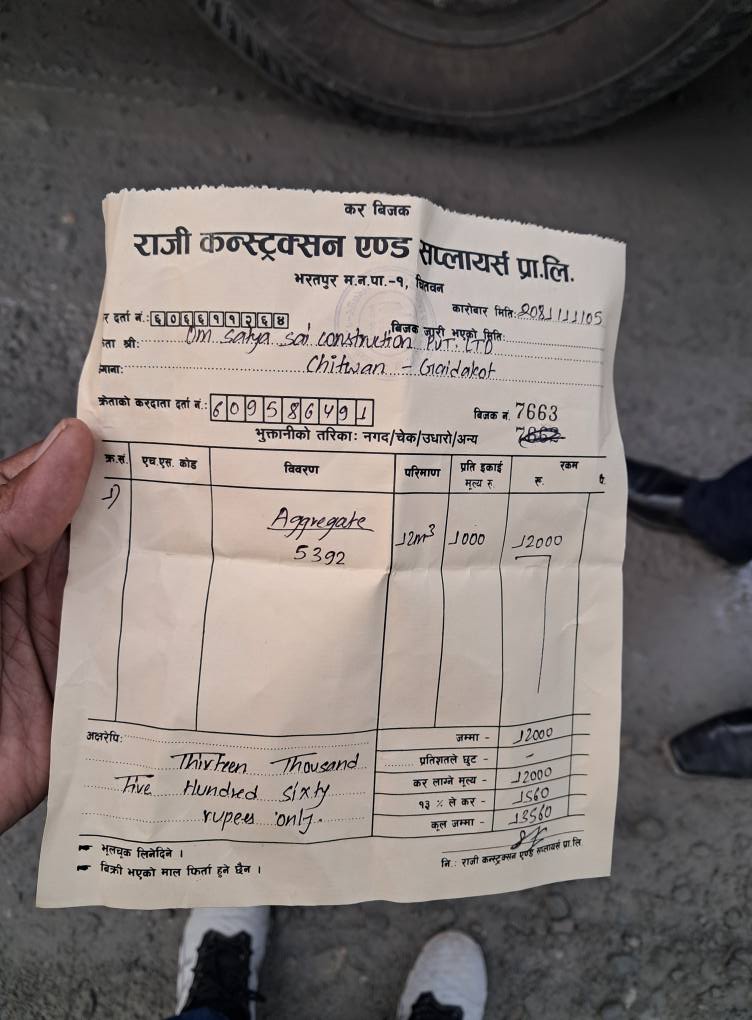 कर बिजक
राजी कन्स्ट्रक्सन एण्ड सप्लायर्स प्रा.लि.
भरतपुर म.न.पा.-१, चितवन
कारोबार मितिः 2081/11/05
र दर्ता नं.: ६०६६११२६४
बिजक जारी भएको मितिः
ता श्री: Om Satya Sai Construction PVT. LTD
गानाः Chitwan - Gaidakot
क्रेताको करदाता दर्ता नं.: 609586491
बिजक नं. 7663
भुक्तानीको तरिकाः नगद/चेक/उधारो/अन्य
क्र.सं. एच.एस. कोड विवरण परिमाण प्रति इकाई मूल्य रु. रकम रू. पै.
1) Aggregate 12m³ 1000 12000
5392
अक्षरेपिः जम्मा - 12000
प्रतिशतले छुट - -
Thirteen Thousand कर लाग्ने मूल्य - 12000
Five Hundred sixty १३ % ले कर - 1560
rupees only. कूल जम्मा - 13560
भूलचूक लिनेदिने ।
बिक्री भएको माल फिर्ता हुने छैन ।
नि.: राजी कन्स्ट्रक्सन एण्ड सप्लायर्स प्रा.लि